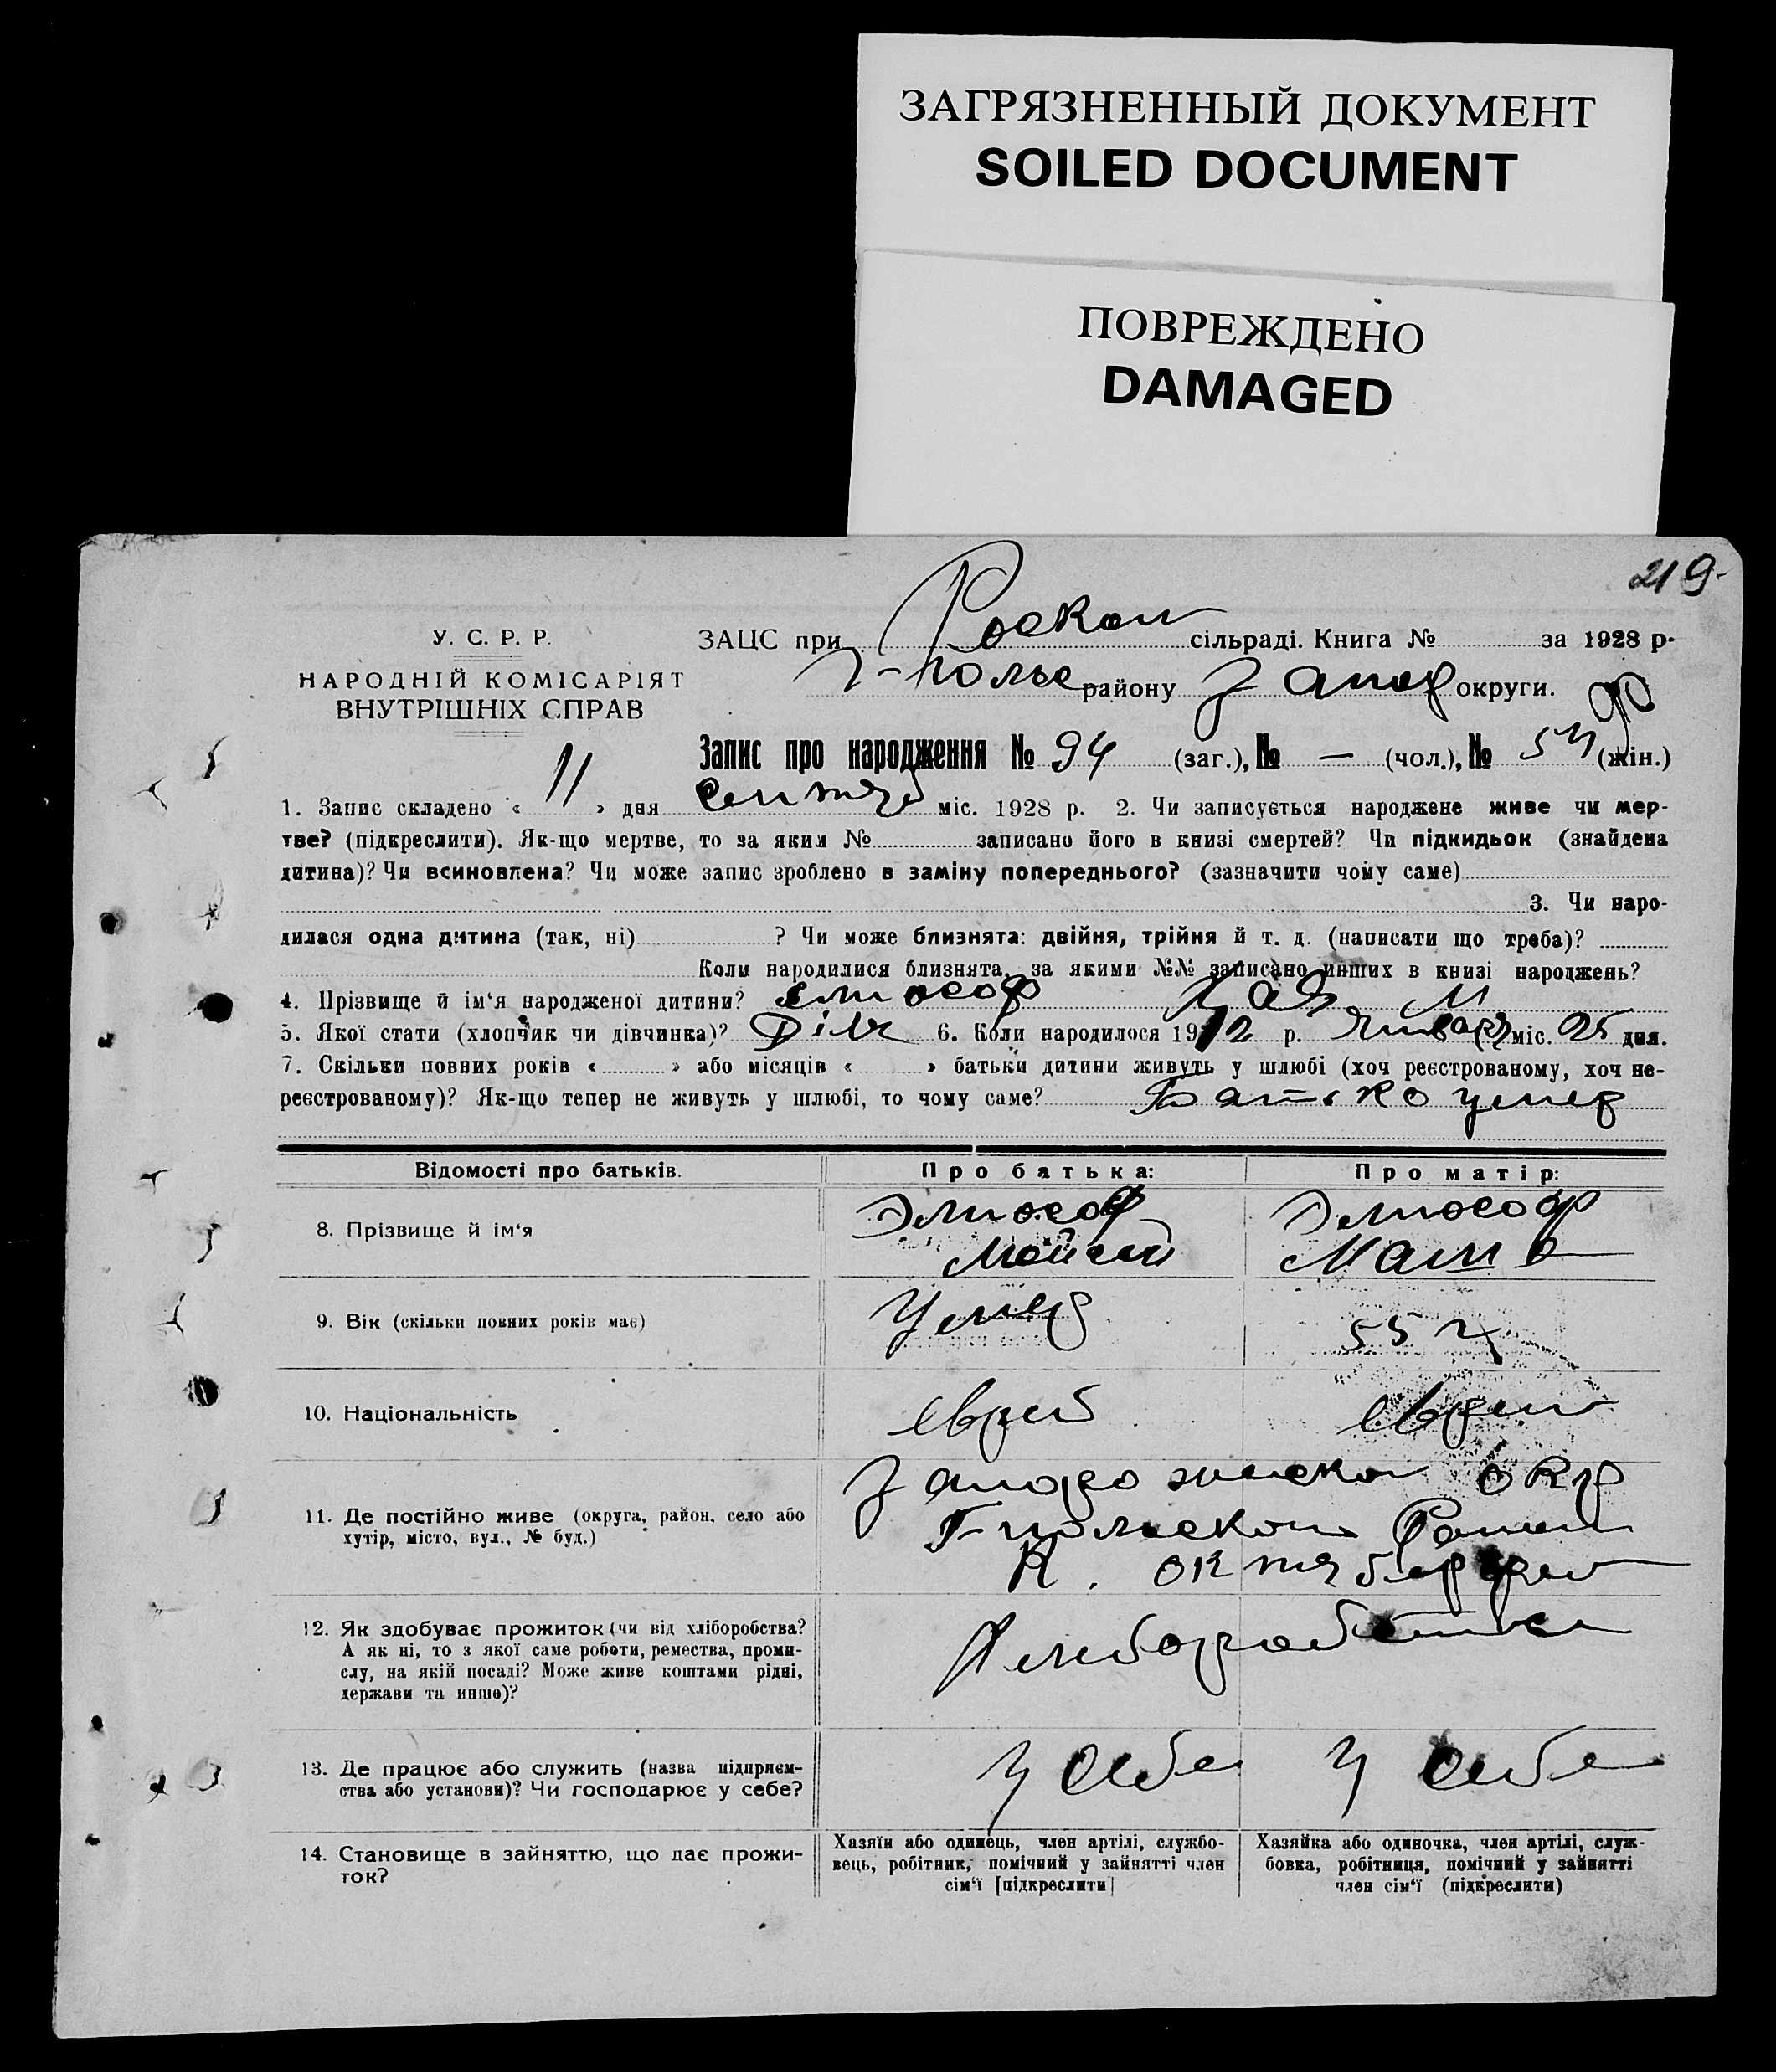 ЗАГРЯЗНЕННЫЙ ДОКУМЕНТ
SOILED DOCUMENT
ПОВРЕЖДЕНО
DAMAGED
219
У. С. Р. Р.
НАРОДНІЙ КОМІСАРІЯТ
ВНУТРІШНІХ СПРАВ
ЗАЦС при сільраді. Книга № за 1928 р.
району Запор округи.
Запис про народження № 94 (заг.), № — (чол.), № (жін.)
1. Запис складено « 11 » дня Сентяб міс. 1928 р. 2. Чи записується народжене живе чи мер-
тве? (підкреслити). Як-що мертве, то за яким № записано його в книзі смертей? Чи підкидьок (знайдена
дитина)? Чи всиновлена? Чи може запис зроблено в заміну попереднього? (зазначити чому саме)
3. Чи наро-
дилася одна дитина (так, ні) ? Чи може близнята: двійня, трійня й т. д. (написати що треба)?
Коли народилися близнята, за якими №№ записано инших в книзі народжень?
4. Прізвище й ім‘я народженої дитини? Хая М
5. Якої стати (хлопчик чи дівчинка)? Дівч 6. Коли народилося 1912 р. Январ міс. 25 дня.
7. Скільки повних років « » або місяців « » батьки дитини живуть у шлюбі (хоч реєстрованому, хоч не-
реєстрованому)? Як-що тепер не живуть у шлюбі, то чому саме? Батько умер
Відомості про батьків. Про батька: Про матір:
8. Прізвище й ім‘я
Мойсей
9. Вік (скільки повних років має) Умер 55
10. Національність Еврей
11. Де постійно живе (округа, район, село або
хутір, місто, вул., № буд.)
12. Як здобуває прожиток (чи від хліборобства?
А як ні, то з якої саме роботи, ремества, проми-
слу, на якій посаді? Може живе коштами рідні,
держави та инше)?
13. Де працює або служить (назва підприєм-
ства або установи)? Чи господарює у себе?
У себе У себе
14. Становище в зайняттю, що дає прожи-
ток?
Хазяїн або одинець, член артілі, службо-
вець, робітник, помічний у зайнятті член
сім‘ї [підкреслити]
Хазяйка або одиночка, член артілі, служ-
бовка, робітниця, помічний у зайнятті
член сім‘ї (підкреслити)